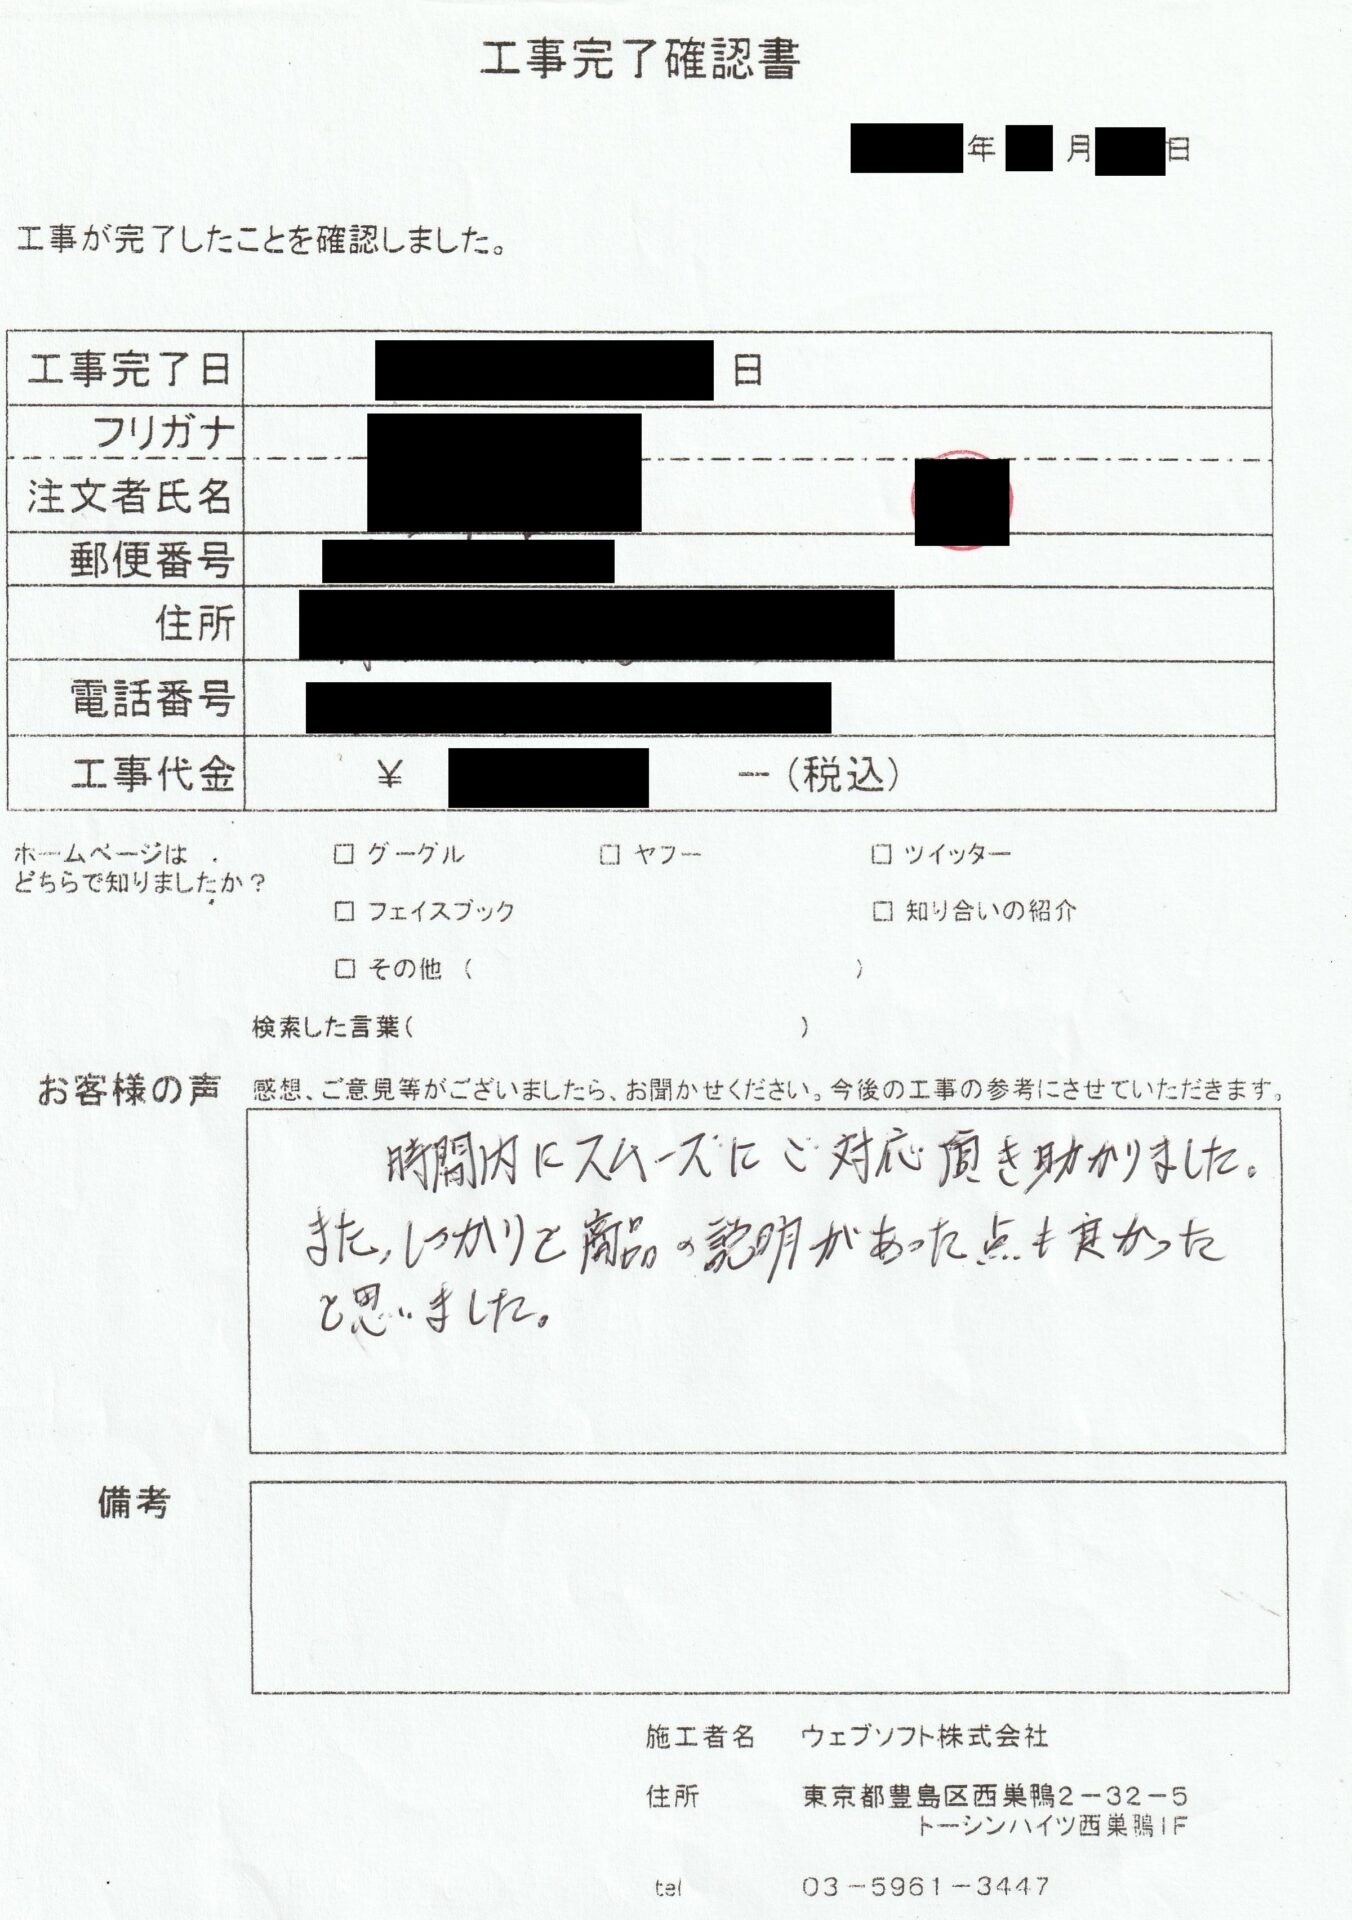 工事完了確認書
年 月 日
工事が完了したことを確認しました。
工事完了日 日
フリガナ
注文者氏名
郵便番号
住所
電話番号
工事代金 ¥ ー(税込)
ホームページは
どちらで知りましたか？
□ グーグル □ ヤフー □ ツイッター
□ フェイスブック □ 知り合いの紹介
□ その他 ( )
検索した言葉( )
お客様の声 感想、ご意見等がございましたら、お聞かせください。今後の工事の参考にさせていただきます。
時間内にスムーズにご対応頂き助かりました。
また、しっかりと商品の説明があった点も良かった
と思いました。
備考
施工者名 ウェブソフト株式会社
住所 東京都豊島区西巣鴨2－32－5
トーシンハイツ西巣鴨1F
tel 03－5961－3447